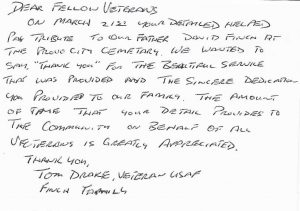 Dear Fellow Veterans
On March 2/22 your detailed helped
pay tribute to our father David Finch at
the Provo City Cemetary. We wanted to
say "Thank you" for the beautiful service
that was provided and the sincere dedication
you provided to our family. The amount
of time that your detail provides to
the community on behalf of all
veuterans is greatly appreciated.
Thank you,
Tom Drake, Veteran USAF
Finch Family